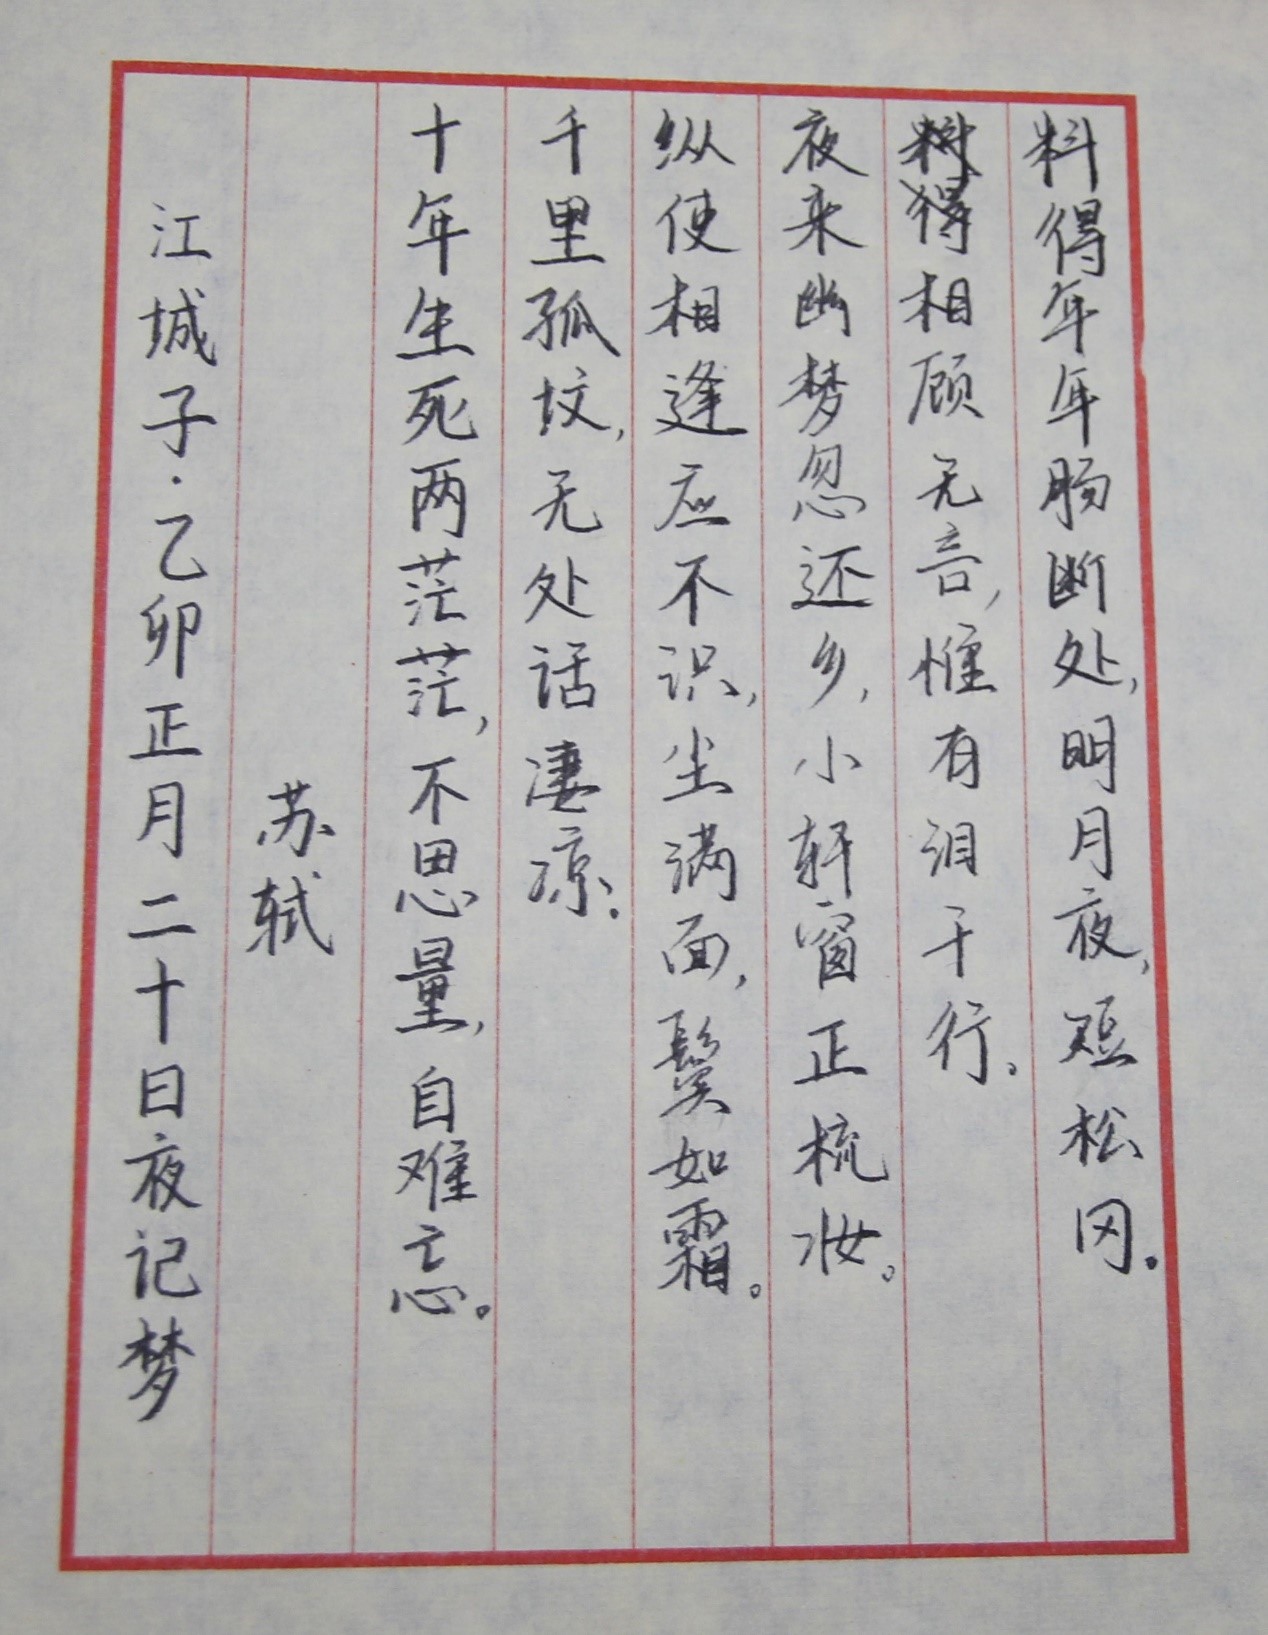 江城子·乙卯正月二十日夜记梦
苏轼
十年生死两茫茫，不思量，自难忘。
千里孤坟，无处话凄凉。
纵使相逢应不识，尘满面，鬓如霜。
夜来幽梦忽还乡，小轩窗正梳妆。
相顾无言，惟有泪千行。
料得年年肠断处，明月夜，短松冈。